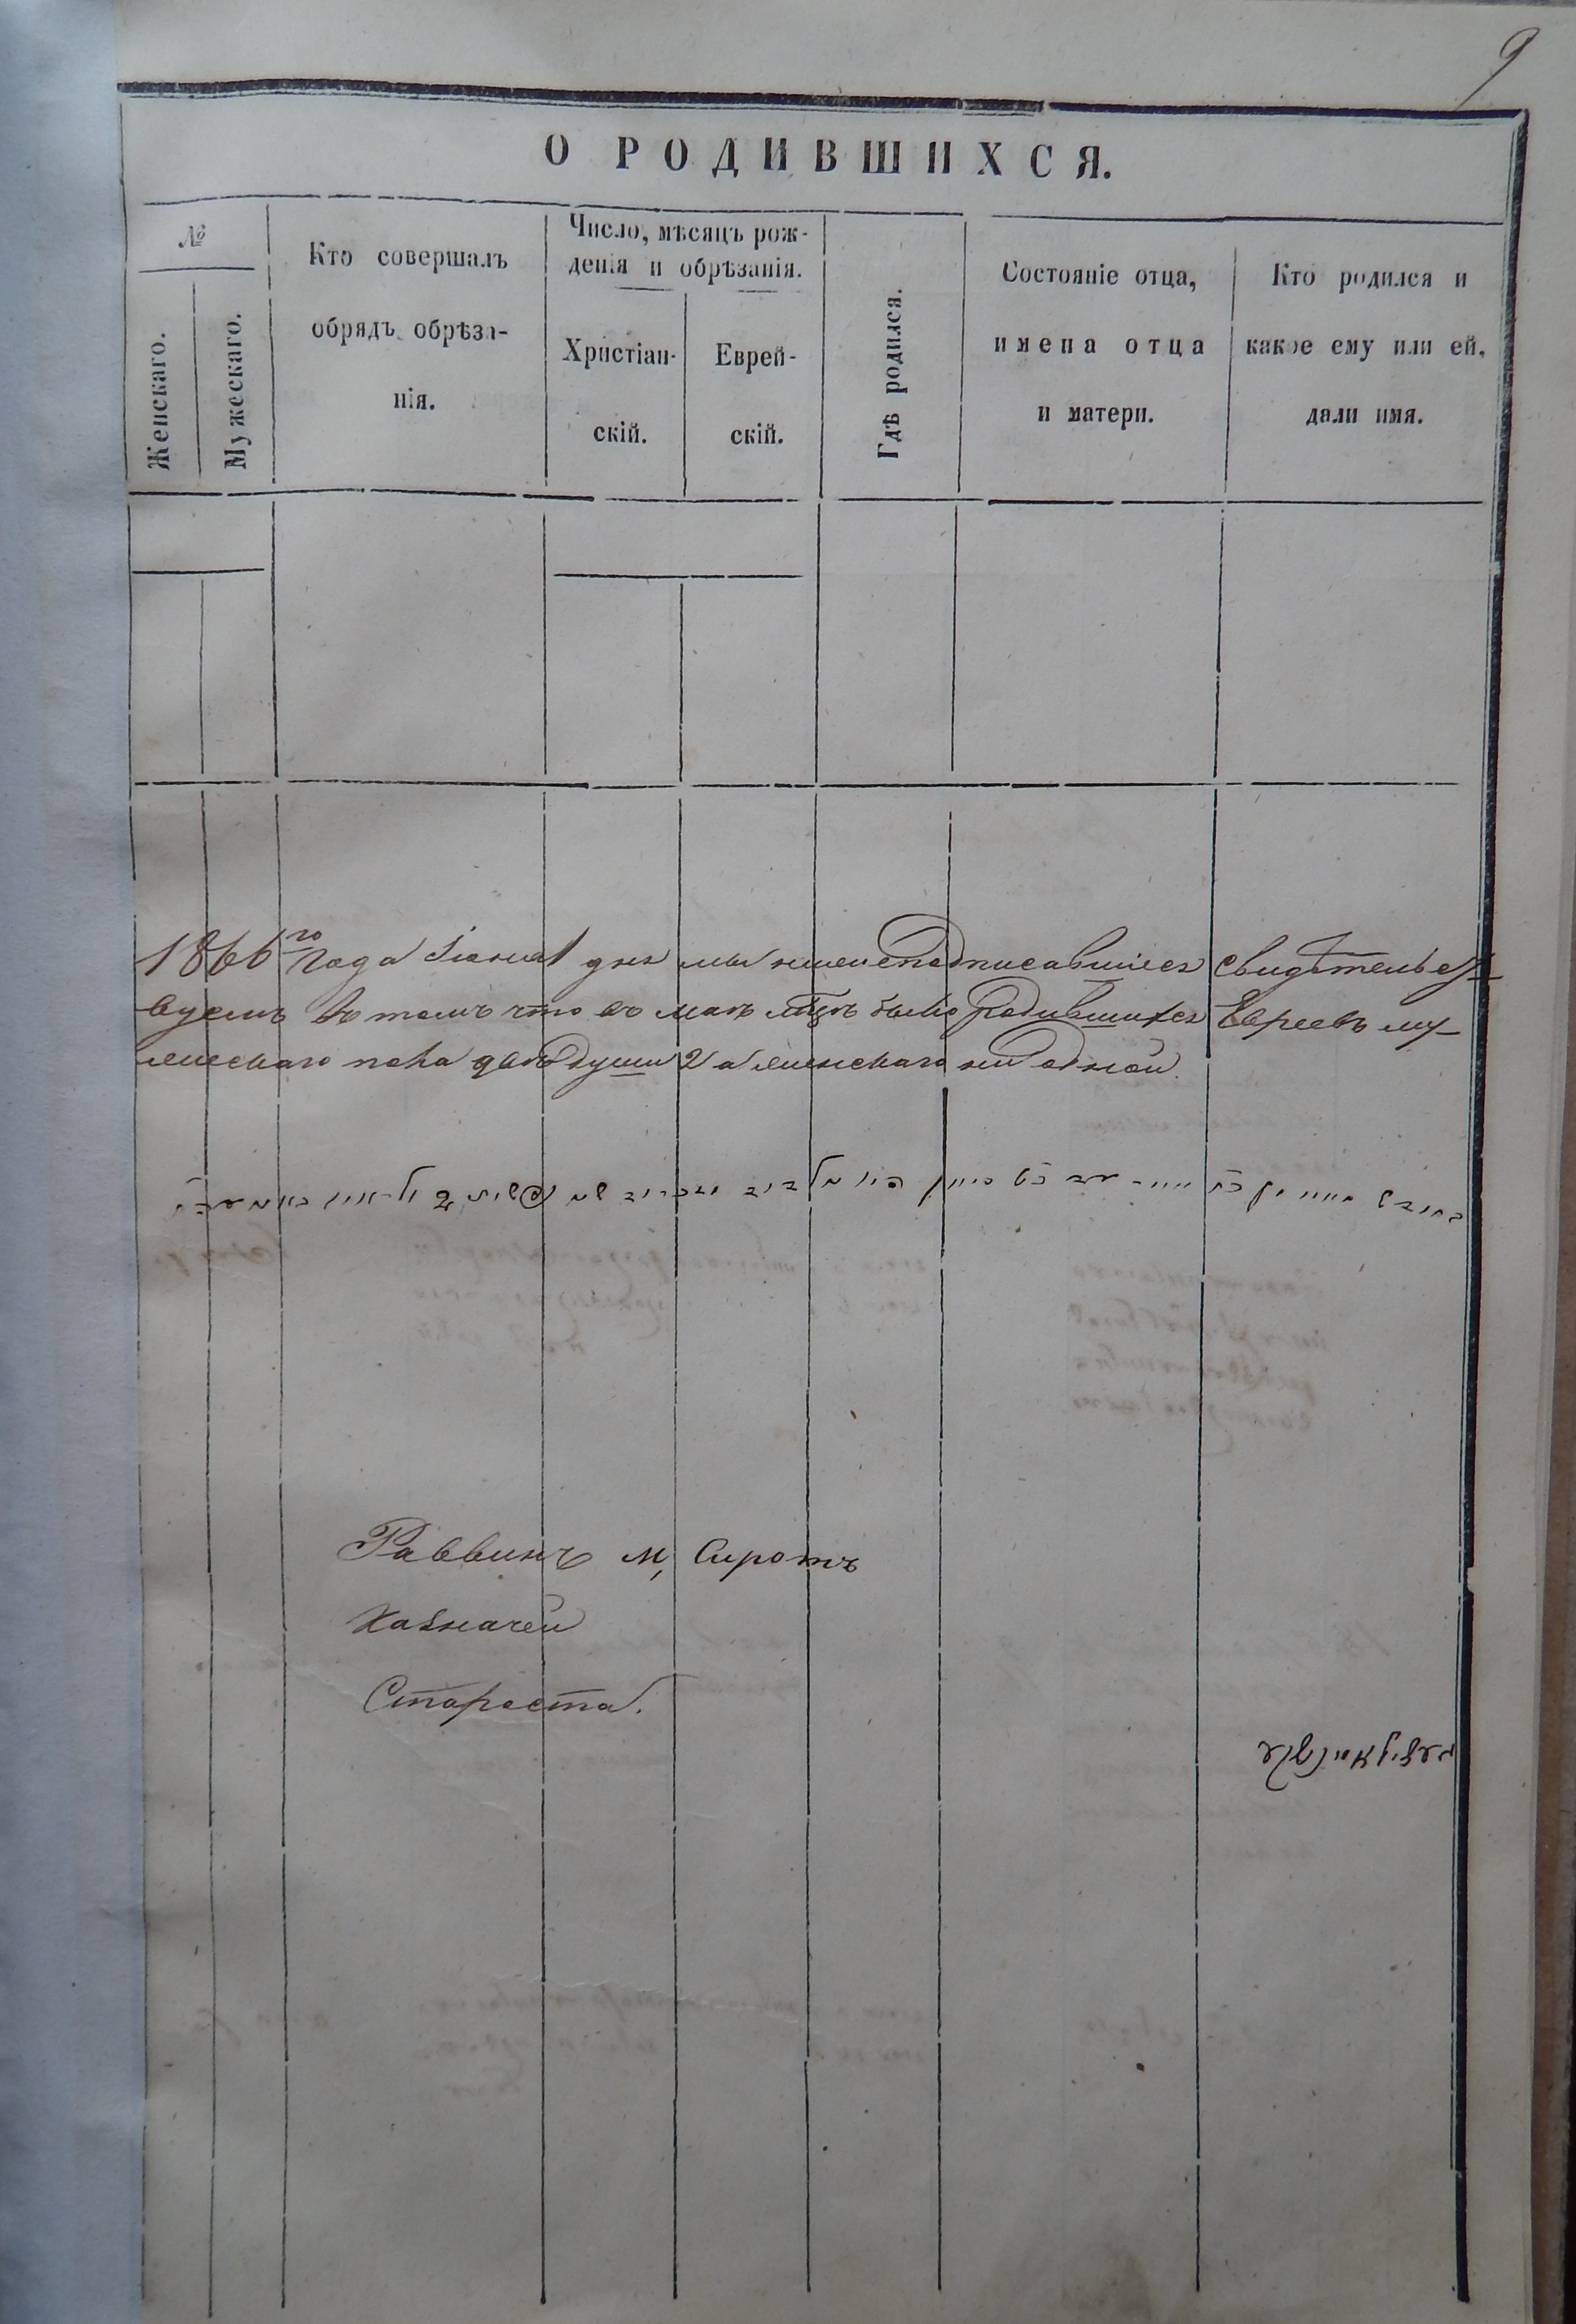 9
О РОДИВШИХСЯ.
№
Женскаго.
Мужескаго.
Кто совершалъ
обрядъ обрѣза-
нія.
Число, мѣсяцъ рож-
денія и обрѣзанія.
Христіан-
скій.
Еврей-
скій.
Гдѣ родился.
Состояніе отца,
имена отца
и матери.
Кто родился и
какое ему или ей,
дали имя.
1866го года Іюня 1 дня мы нижеподписавшіеся свидѣтельст
вуемъ въ томъ что въ маѣ мцѣ было родившихся Евреевъ му-
жескаго пола двѣ души 2 а женскаго ни одной.
Раввинъ М, Сиротъ
Казначей
Староста.